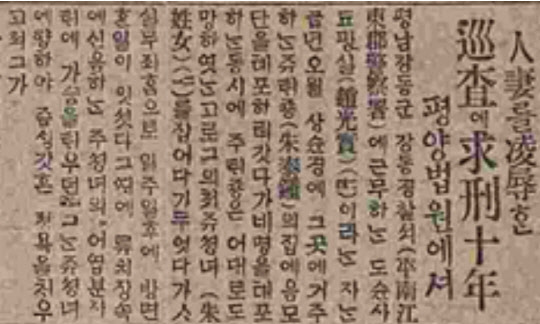 人妻를凌辱한
巡査에求刑十年
평양법원에서
평남강동군 강동경찰서(平南江
東郡警察署)에근무하는 도순사
됴광실(趙光實)(三)이라는 자는
금년오월 상순경에 그곳에거주
하는쥬태종(朱泰鍾)의집에음모
단을톄포하러갓다가비명을톄포
하는동시에 주태종은 어대로도
망하엿는고로그의처쥬청녀(朱
姓女)(二)를잡어다가두엇다가스
실무죄홈으로 일주일후에 방면
혼일이 잇섯다그런데 류치장속
에신용하는 주청녀의
러에 가슴을태우던 그는쥬청녀
에향하야 즘생갓흔 정욕을채우
고저그가